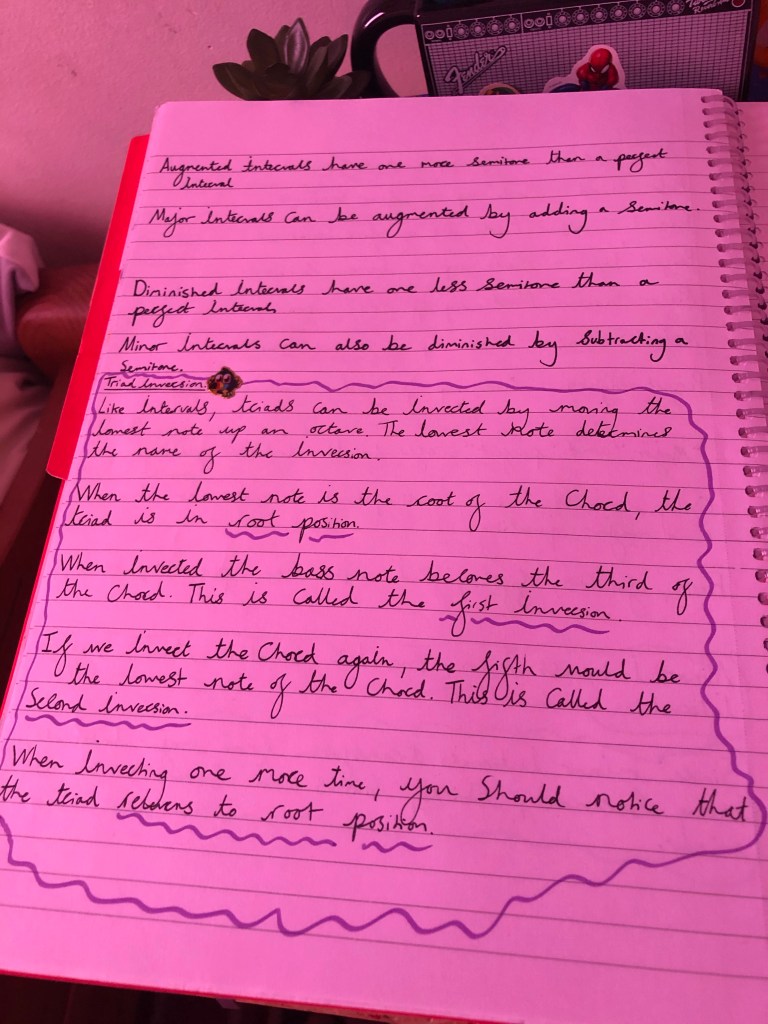 Fender
Augmented Intervals have one more semitone than a perfect
Interval
Major Intervals can be augmented by adding a semitone.
Diminished Intervals have one less semitone than a
perfect Interval
Minor Intervals can also be diminished by subtracting a
Semitone.
Triad Inversion
Like Intervals, triads can be inverted by moving the
lowest note up an octave. The lowest note determines
the name of the inversion.
When the lowest note is the root of the Chord, the
triad is in root position.
When Inverted the bass note becomes the third of
the Chord. This is Called the first inversion.
If we Invert the Chord again, the fifth would be
the lowest note of the Chord. This is Called the
Second inversion.
When Inverting one more time, you Should notice that
the triad returns to root position.